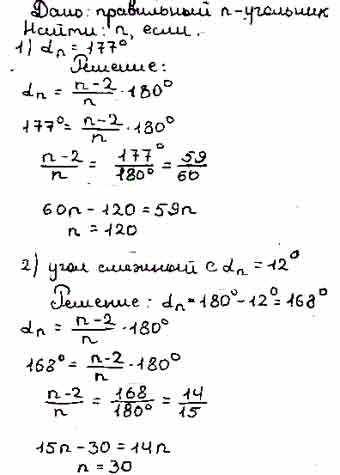 Дано: правильный n-угольник
Найти: n, если.
1) αn = 177°
Решение:
αn = n-2/n · 180°
177° = n-2/n · 180°
n-2/n = 177°/180° = 59/60
60n - 120 = 59n
n = 120
2) угол смежный с αn = 12°
Решение: αn = 180° - 12° = 168°
αn = n-2/n · 180°
168° = n-2/n · 180°
n-2/n = 168/180° = 14/15
15n - 30 = 14n
n = 30